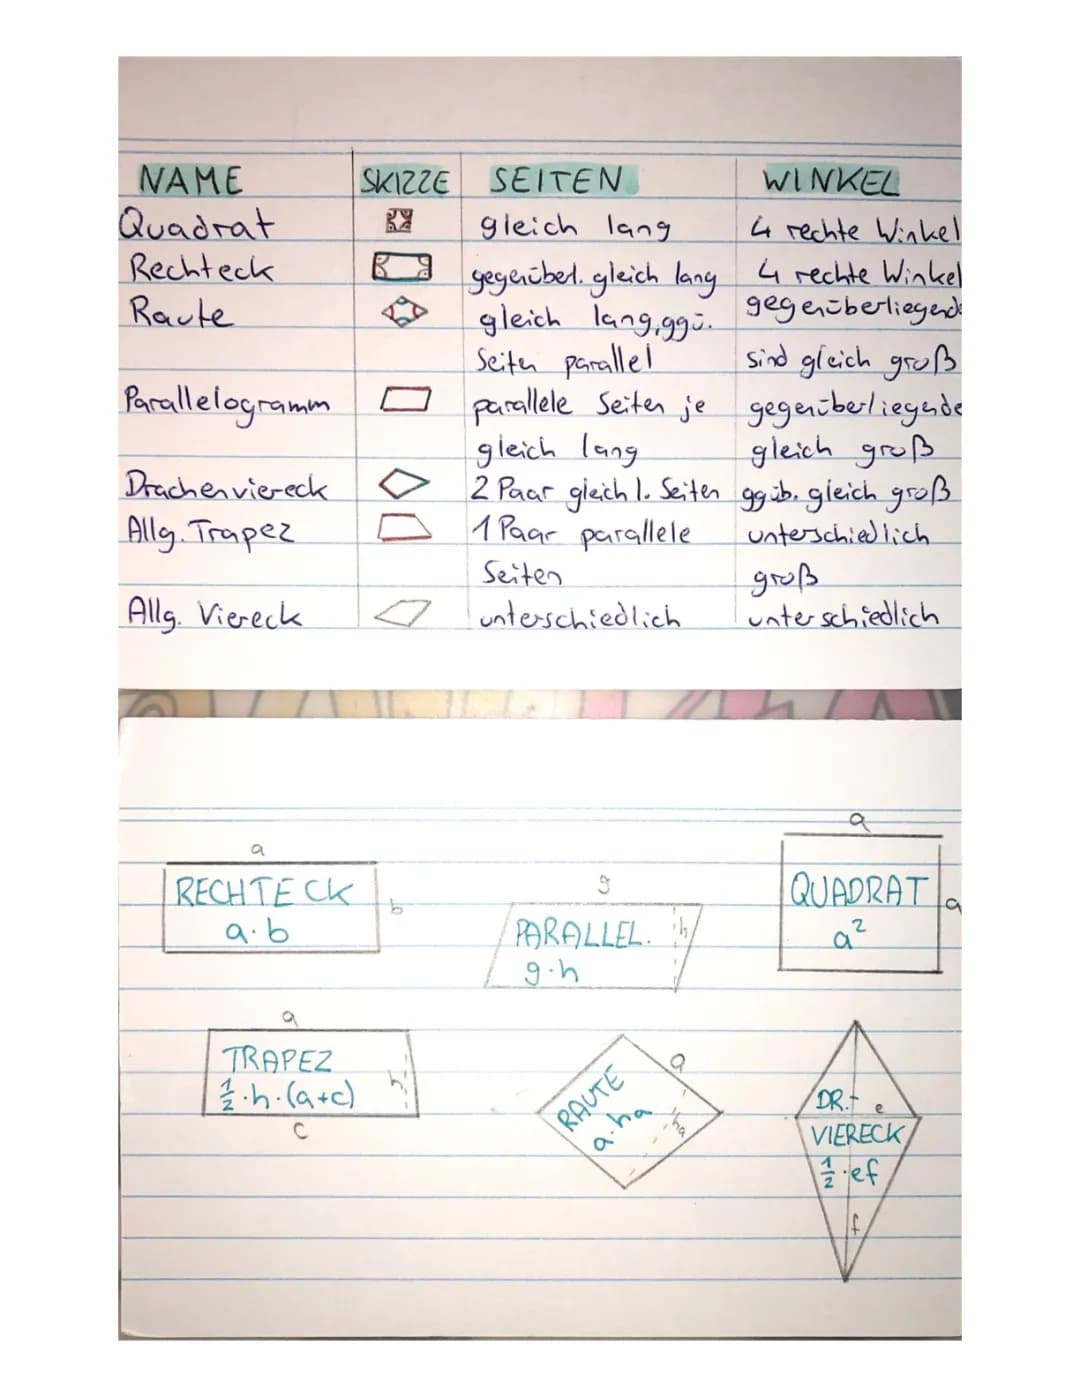 NAME SKIZZE SEITEN WINKEL
Quadrat gleich lang 4 rechte Winkel
Rechteck gegenüberl. gleich lang 4 rechte Winkel
Raute gleich lang, ggü. gegenüberliegende
Seiten parallel sind gleich groß
Parallelogramm parallele Seiten je gegenüberliegende
gleich lang gleich groß
Drachenviereck 2 Paar gleich l. Seiten ggüb. gleich groß
Allg. Trapez 1 Paar parallele unterschiedlich
Seiten groß
Allg. Viereck unterschiedlich unterschiedlich
a
RECHTECK
b
a·b
g
PARALLEL.
h
g·h
a
QUADRAT
a
a²
a
TRAPEZ
½·h·(a+c)
h
c
a
RAUTE
a·ha
ha
DR.-
e
VIERECK
½·ef
f